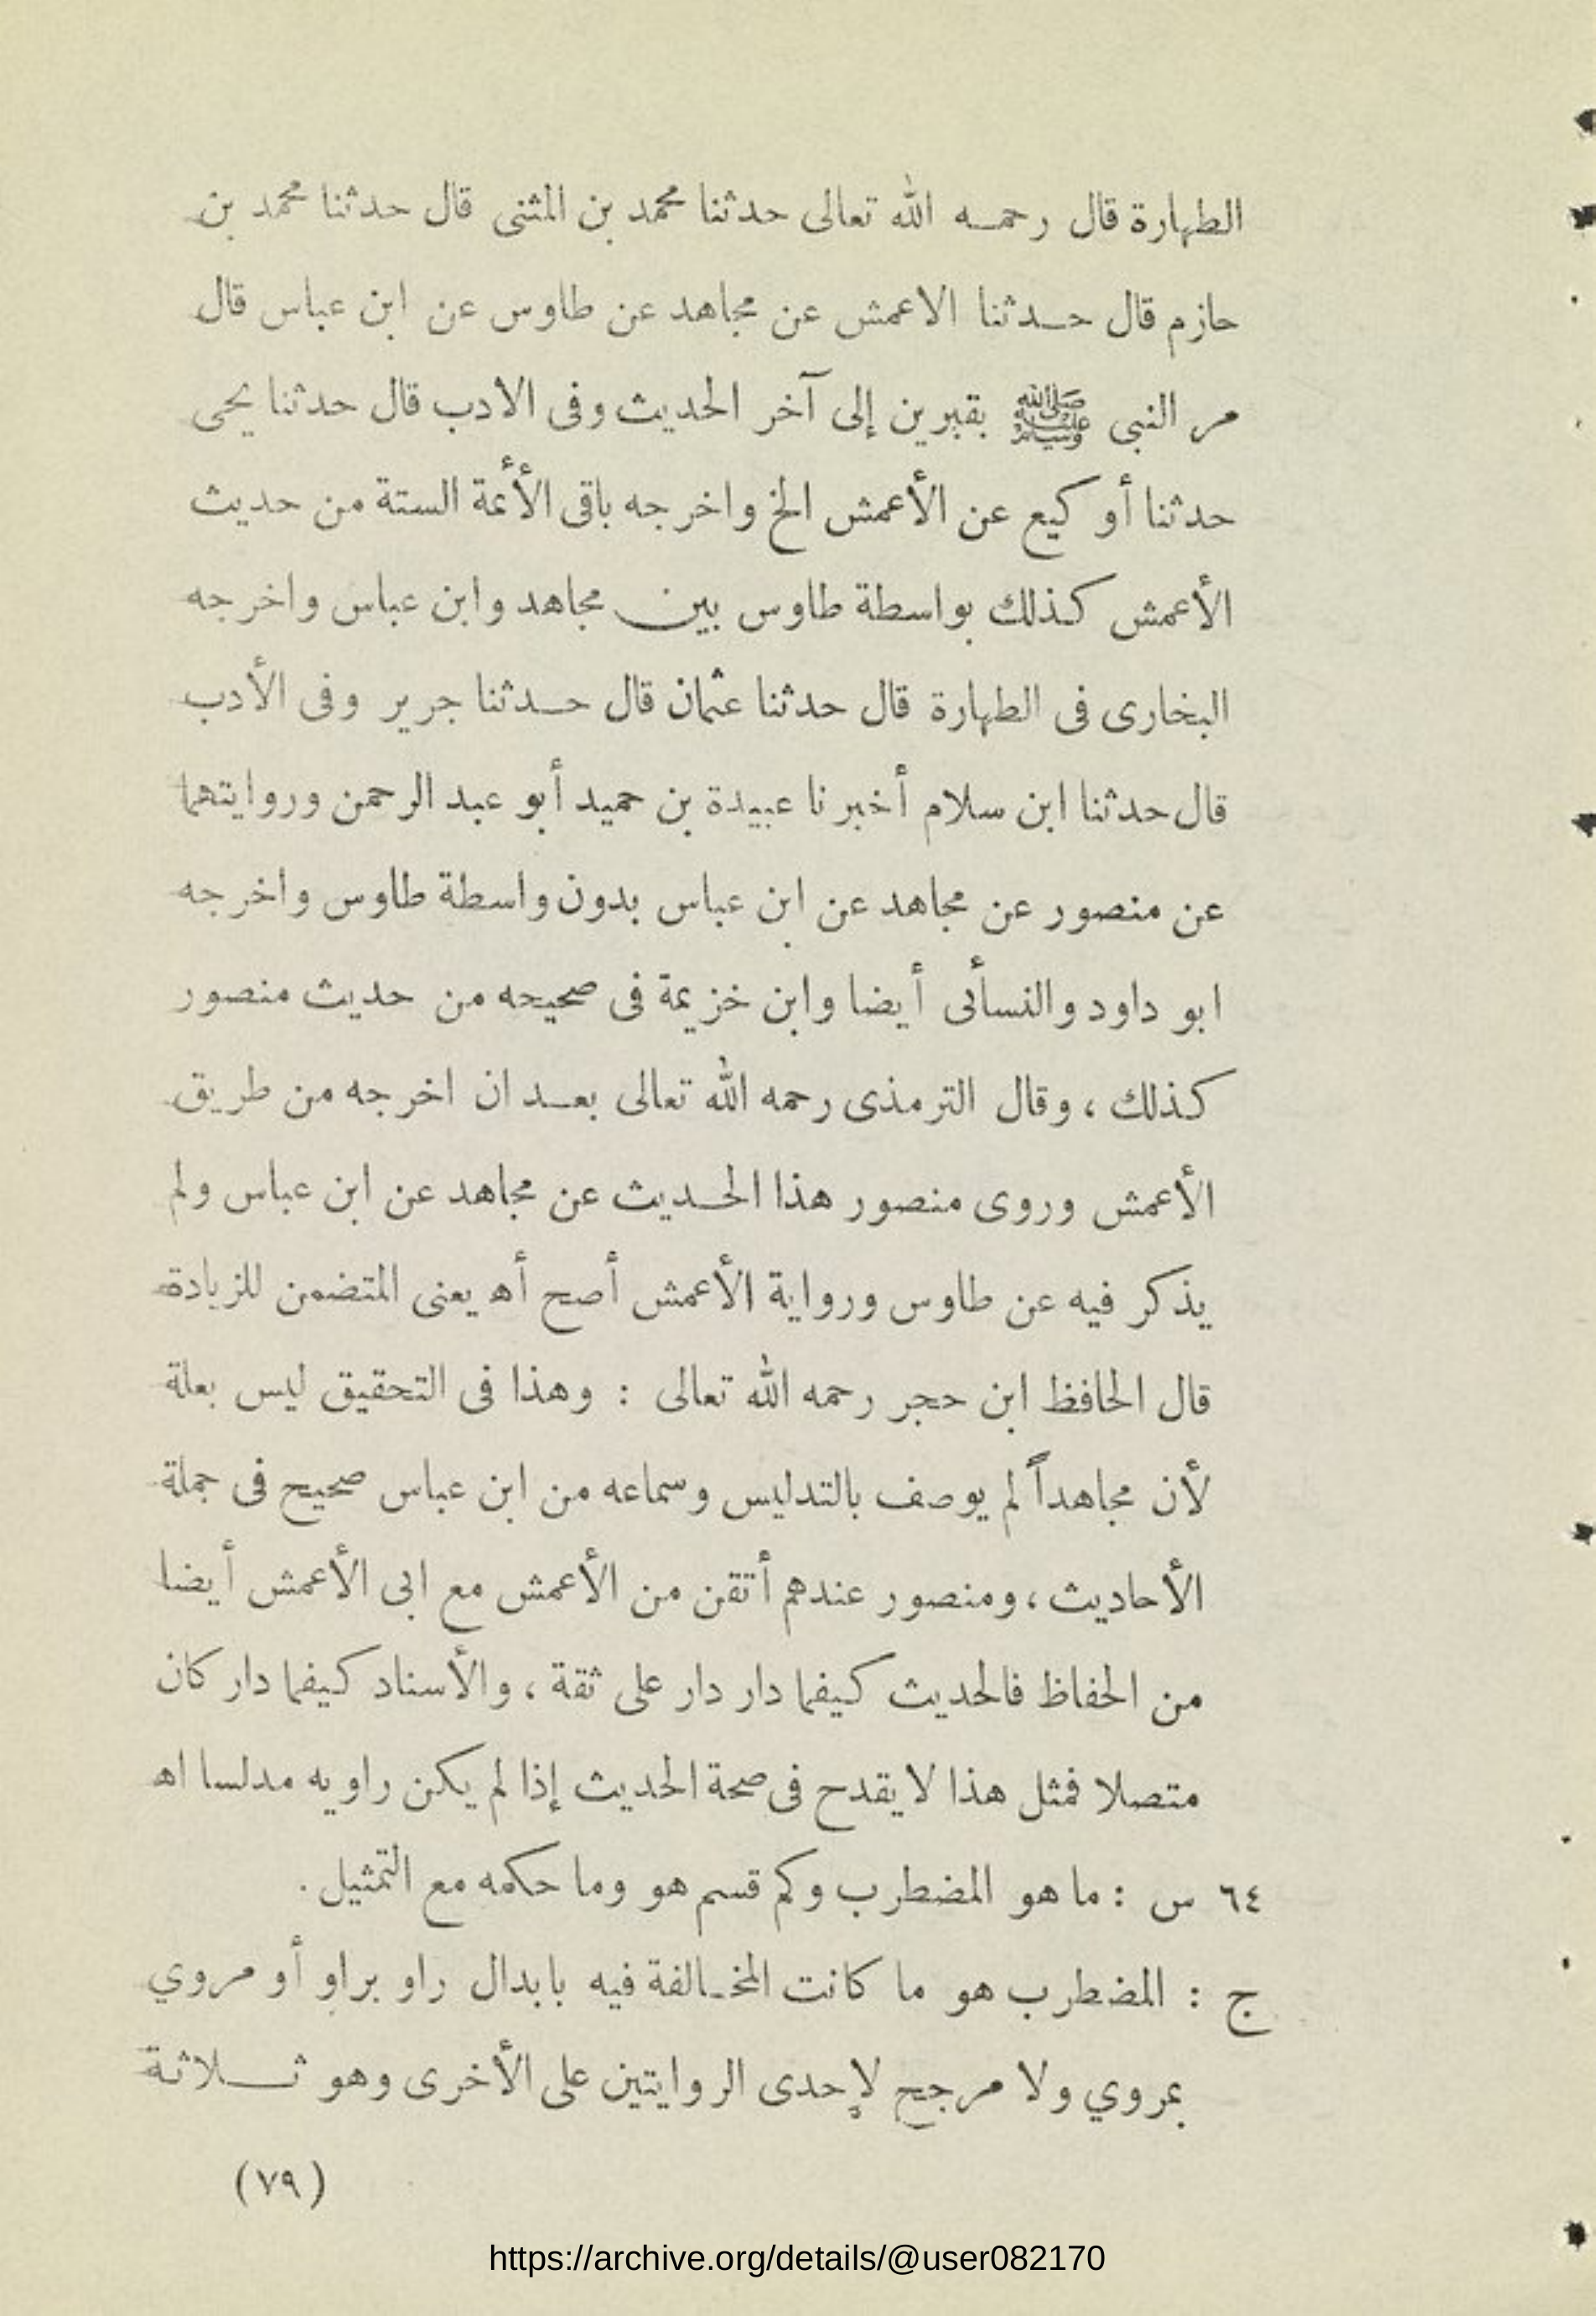 الطهارة قال رحمه الله تعالى حدثنا محمد بن المثنى قال حدثنا محمد بن
حازم قال حدثنا الاعمش عن مجاهد عن طاوس عن ابن عباس قال
مر النبى ﷺ بقبرين إلى آخر الحديث وفى الادب قال حدثنا يحيى
حدثنا أو كيع عن الأعمش الخ واخرجه باقى الأئمة الستة من حديث
الأعمش كذلك بواسطة طاوس بين مجاهد وابن عباس واخرجه
البخارى فى الطهارة قال حدثنا عثمان قال حدثنا جرير وفى الأدب
قال حدثنا ابن سلام أخبرنا عبيدة بن حميد أبو عبد الرحمن وروايتهما
عن منصور عن مجاهد عن ابن عباس بدون واسطة طاوس واخرجه
ابو داود والنسأئى أيضا وابن خزيمة فى صحيحه من حديث منصور
كذلك ، وقال الترمذى رحمه الله تعالى بعد ان اخرجه من طريق
الأعمش وروى منصور هذا الحديث عن مجاهد عن ابن عباس ولم
يذكر فيه عن طاوس ورواية الأعمش أصح أه يعنى المتضمن للزيادة
قال الحافظ ابن حجر رحمه الله تعالى : وهذا فى التحقيق ليس بعلة
لأن مجاهداً لم يوصف بالتدليس وسماعه من ابن عباس صحيح فى جملة
الأحاديث ، ومنصور عندهم أتقن من الأعمش مع ابى الأعمش أيضا
من الحفاظ فالحديث كيفما دار دار على ثقة ، والأسناد كيفما دار كان
متصلا فمثل هذا لا يقدح فى صحة الحديث إذا لم يكن راويه مدلسا اه
٦٤ س : ما هو المضطرب وكم قسم هو وما حكمه مع التمثيل .
ج : المضطرب هو ما كانت المخالفة فيه بابدال راو براو أو مروي
بمروي ولا مرجح لإحدى الروايتين على الأخرى وهو ثلاثة
(٧٩)
https://archive.org/details/@user082170